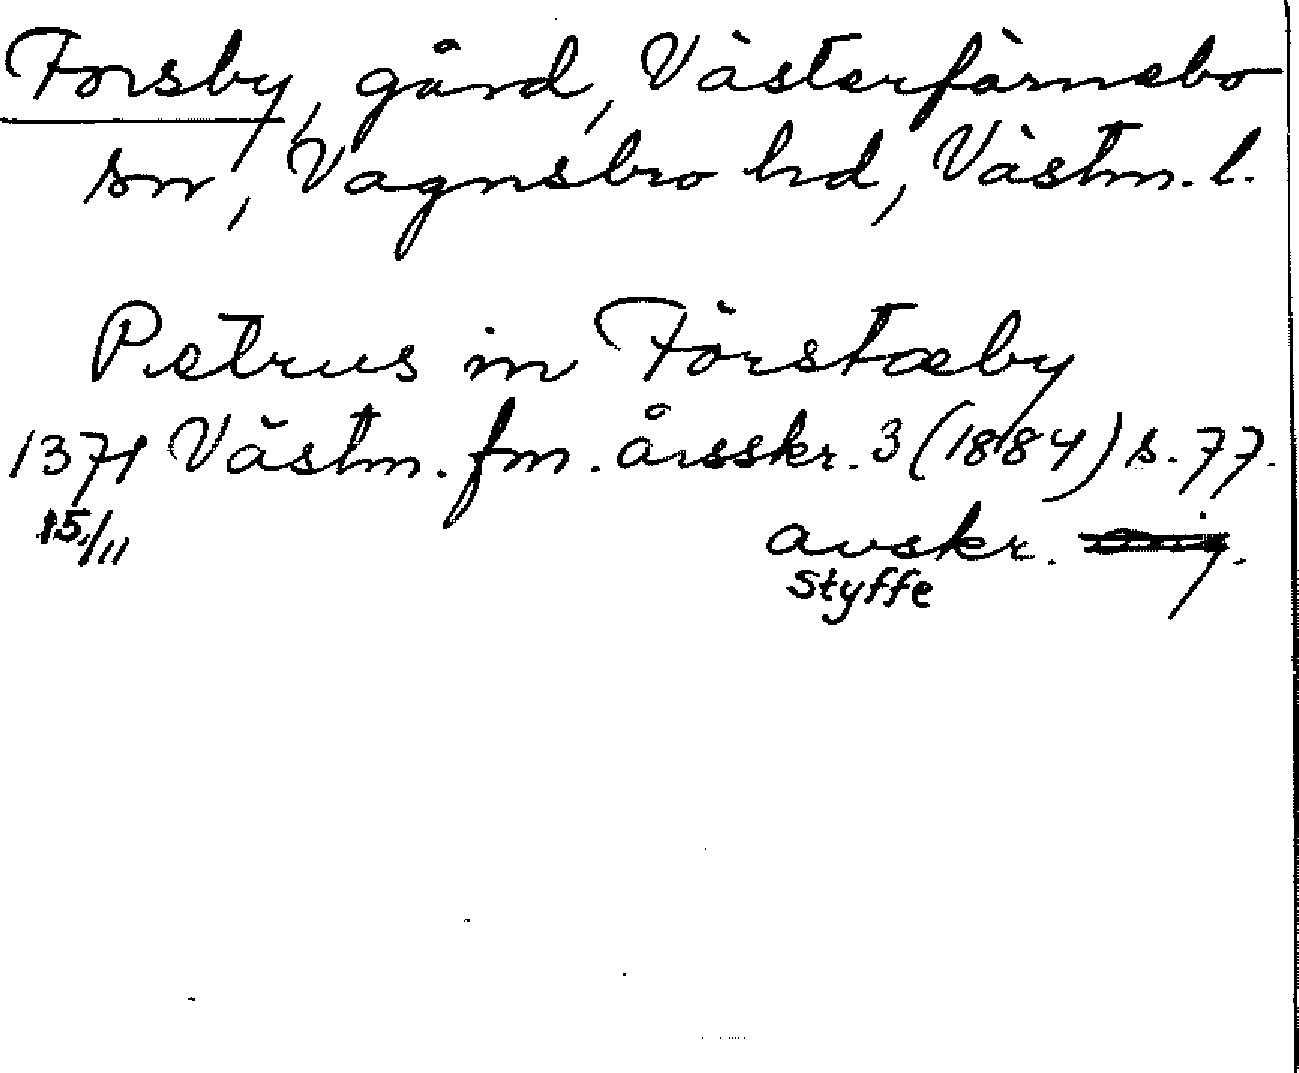 Forsby, gård, Västerfärnebo
sn, Vagnsbro hd, Västm. l.
Petrus in Förstæby
1371 Västm. fm. årsskr. 3 (1884) s. 77.
15/11
avskr.
Styffe